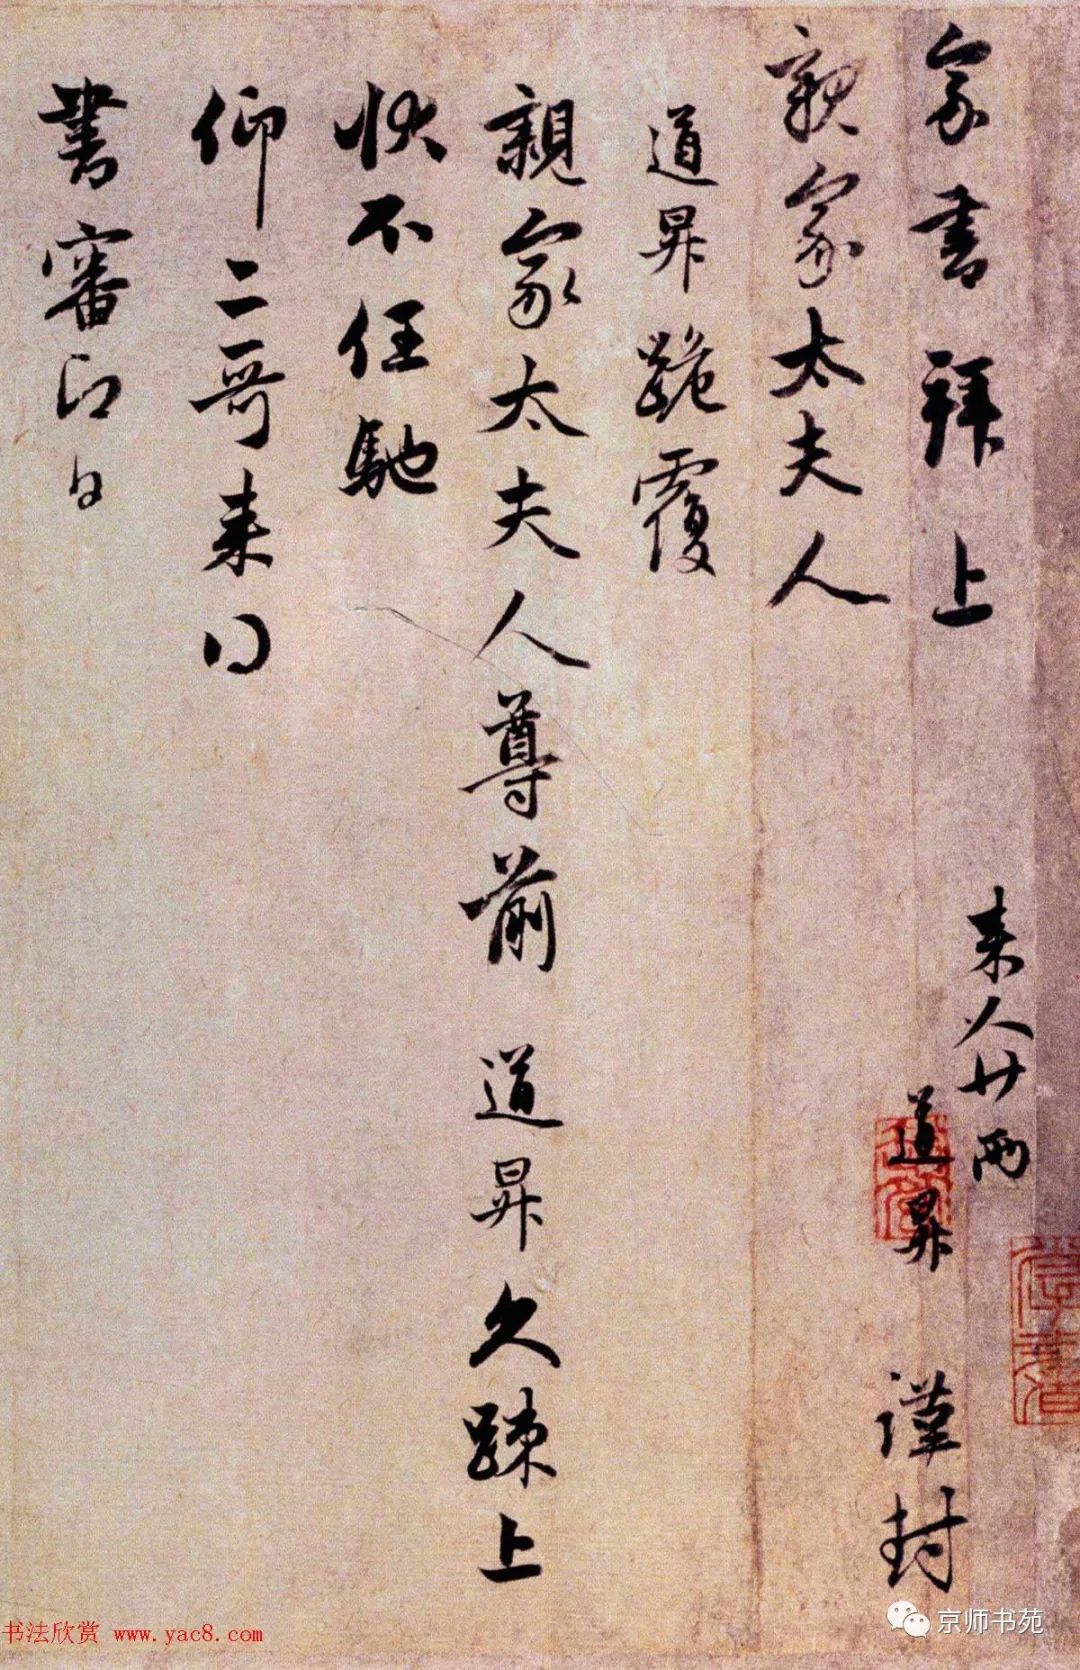 来人廿兩
家書拜上
道昇 謹封
親家太夫人
道昇跪覆
親家太夫人尊前 道昇久踈上
狀不任馳
仰二哥来
書審即日
书法欣赏 www.yac8.com
京师书苑